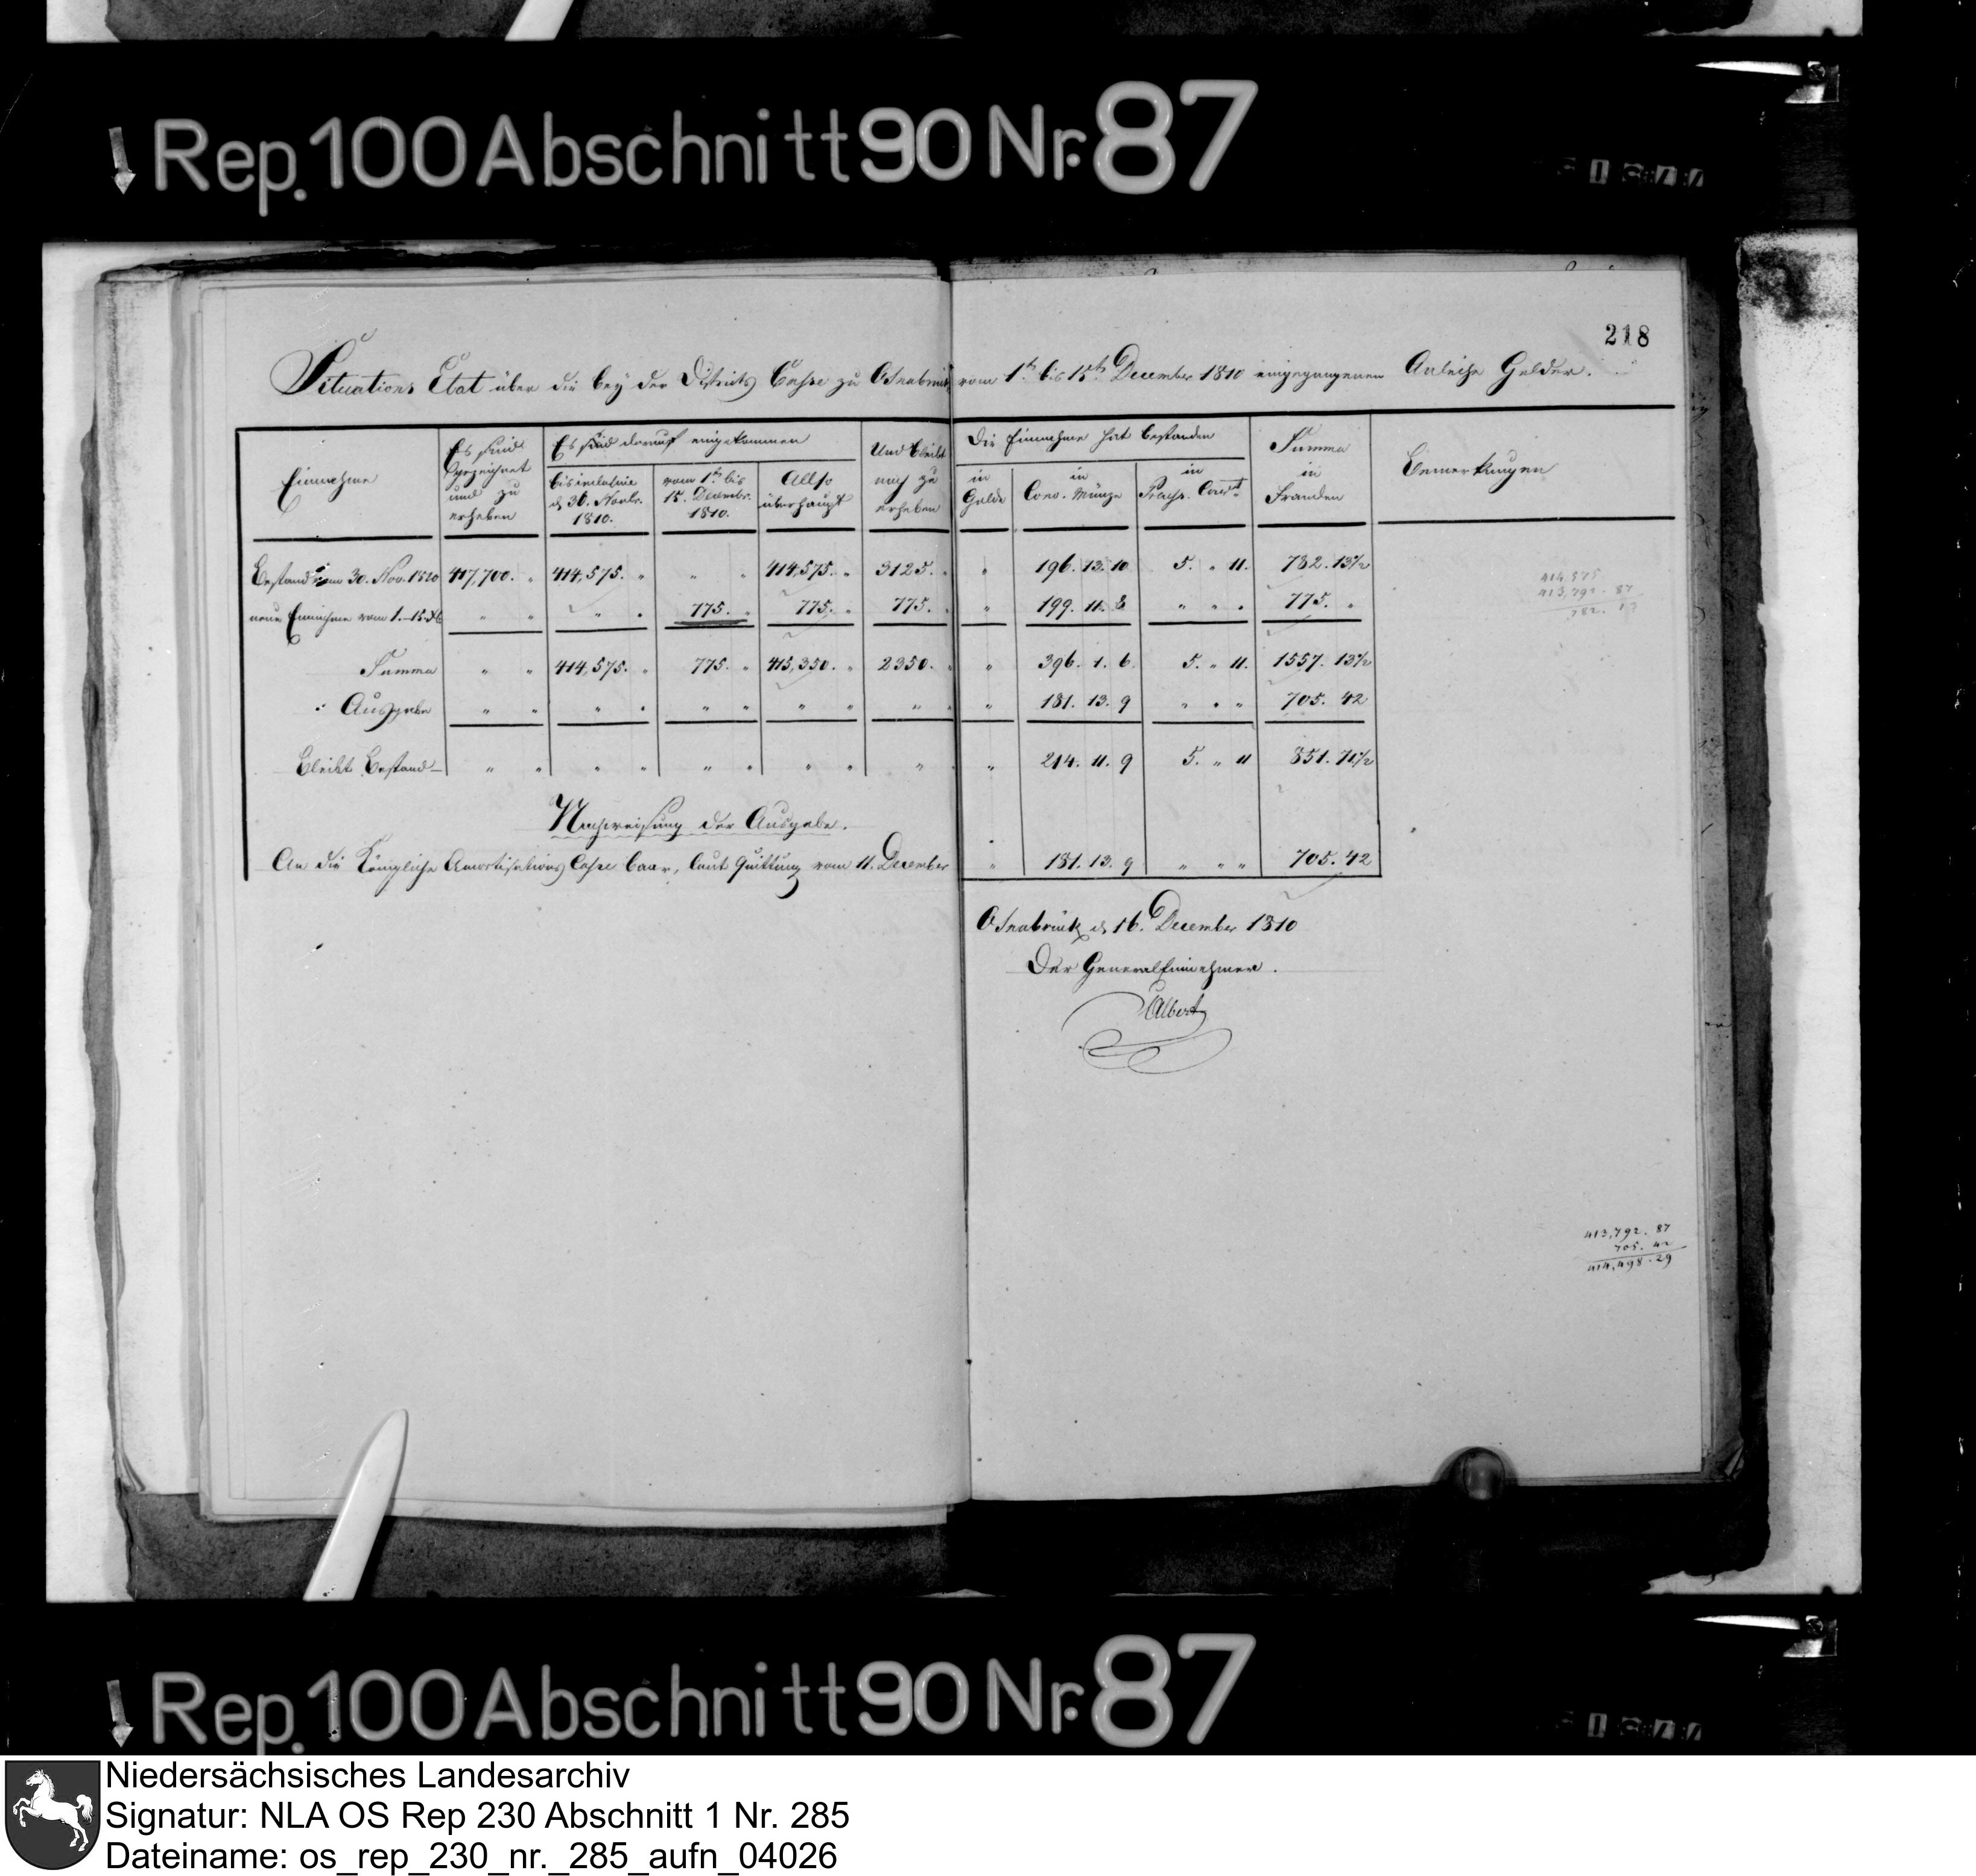 Rep. 100 Abschnitt 90 Nr. 87
218
Situations Etat über die bey der Districts Casse zu Osnabrück vom 1ten bis 15ten December 1810 eingegangenen Anleihe Gelder.
Einnahme
Es sind gezeichnet und zu erheben
Es sind darauf eingekommen
bis inclusive d 30. Novbr. 1810.
vom 1ten bis 15. Decembr. 1810.
Allso überhaupt
Und bleibt noch zu erheben
Die Einnahme hat bestanden
in Golde
in Conv. Münze
in Preuss. Court
Summa in Franken
Bemerkungen
Bestand vom 30. Nov. 1810 417,700. " 414,575. " " " 414,575. " 3125. " " 196. 13. 10 5. " 11. 782. 13½
neue Einnahme vom 1.–15. Db " " " " 775. " 775. " 775. " " 199. 11. 8 " " " 775. "
Summa " " 414,575. " 775. " 415,350. " 2350. " " 396. 1. 6. 5. " 11. 1557. 13½
Ausgabe " " " " " " " " " " " 181. 13. 9 " " " 705. 42
Bleibt Bestand " " " " " " " " " " " 214. 11. 9 5. " 11 851. 71½
Nachweisung der Ausgabe.
An die Königliche Amortisations Casse baar, laut Quittung vom 11. December " 181. 13. 9 " " " 705. 42
Osnabrück d 16. December 1810
Der GeneralEinnehmer.
Albert
414,575
413,792. 87
782. 13
413,792. 87
705. 42
414,498. 29
Rep. 100 Abschnitt 90 Nr. 87
Niedersächsisches Landesarchiv
Signatur: NLA OS Rep 230 Abschnitt 1 Nr. 285
Dateiname: os_rep_230_nr._285_aufn_04026